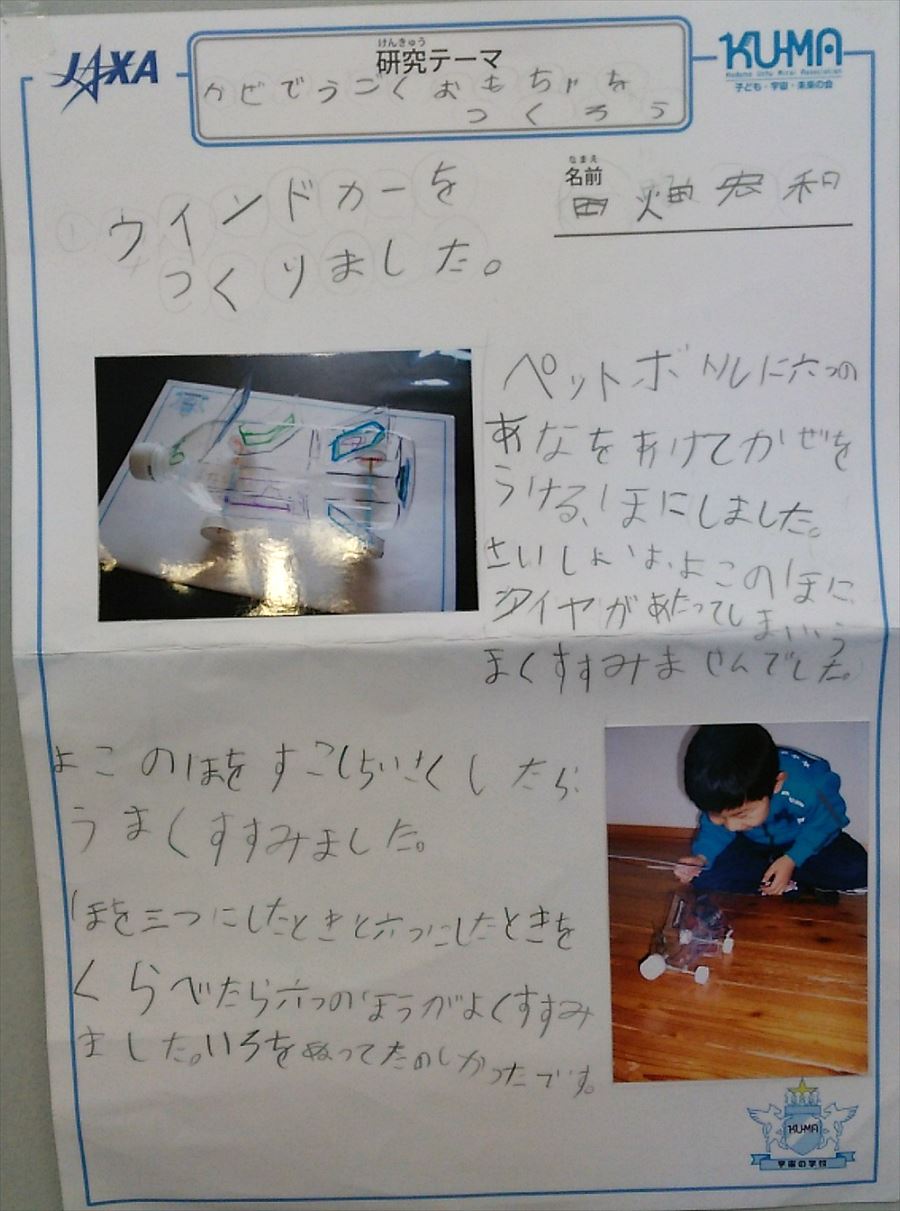 JAXA
けんきゅう
研究テーマ
KU-MA
Kodomo Uchu Mirai Association
子ども・宇宙・未来の会
かぜでうごくおもちゃを
つくろう
なまえ
名前
田畑宏和
ウインドカーを
つくりました。
ペットボトルに六つの
あなをあけてかぜを
うける、ほにしました。
さいしょは、よこのほに、
タイヤがあたってしまいう
まくすすみませんでした。
よこのほをすこしちいさくしたら、
うまくすすみました。
ほを三つにしたときと六つにしたときを
くらべたら六つのほうがよくすすみ
ました。いろをぬってたのしかったです。
KU-MA
宇宙の学校